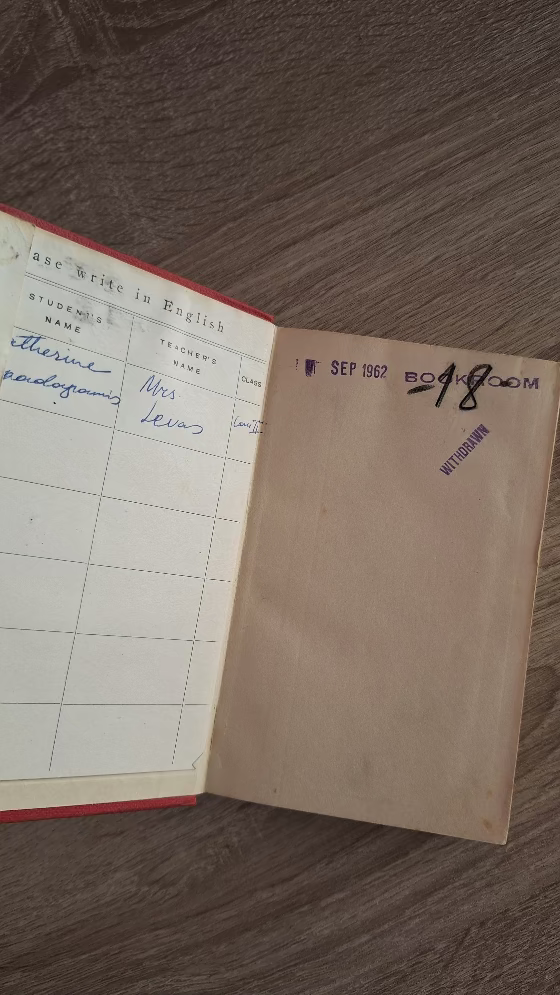 ase write in English
STUDENT'S NAME
TEACHER'S NAME
CLASS
atherine
Mrs.
Levas
SEP 1962
BOOKROOM
-18
WITHDRAWN